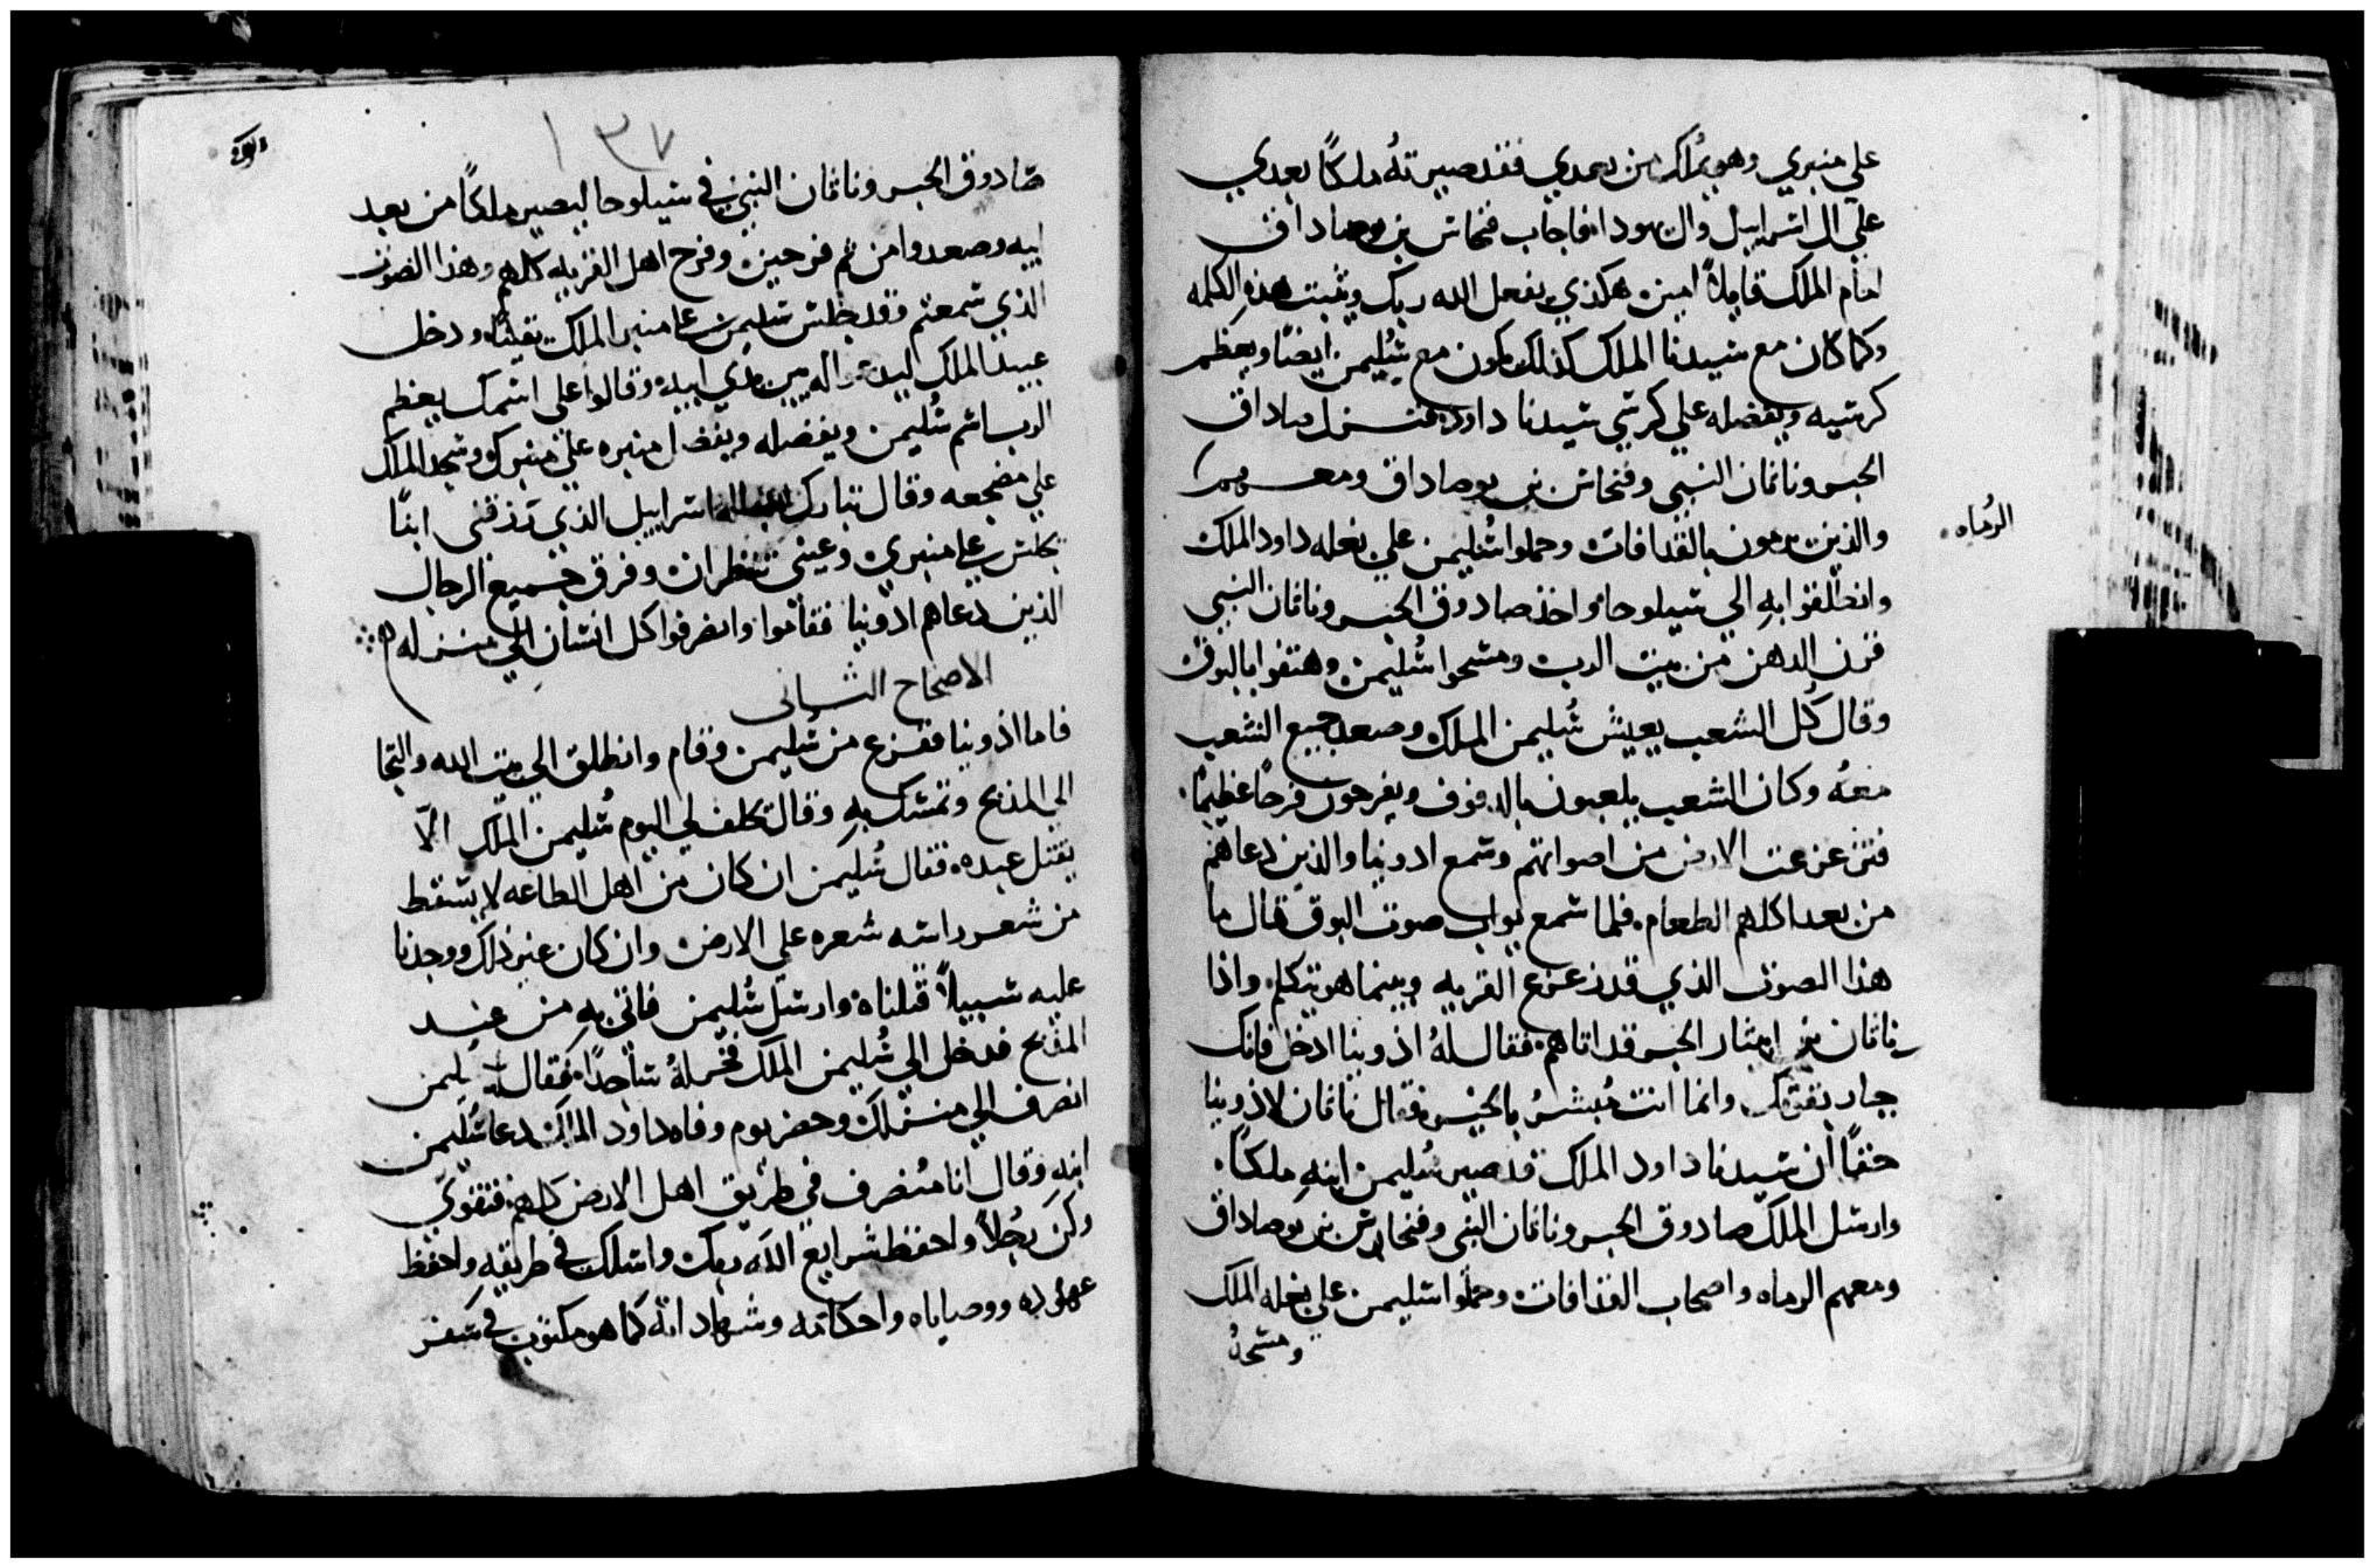 علي منبري وهو يملك من بعدي فقد صيرته ملكًا بعدي
علي ال اسراييل وال يهودا فاجاب فنحاس بن يوصاداق
امام الملك قايلاً امين هكذي يفعل الله ربك ويثبت هذه الكلمه
وكما كان مع سيدنا الملك كذلك يكون مع سُليمن ايضًا ويعظم
كرسيه ويفضله علي كرسي سيدنا داود فنزل صاداق
الحبر وناثان النبي وفنحاس بن يوصاداق ومعهم
الرُماه
والذين يرمون بالقدافات وحملوا سُليمن علي بغله داود الملك
وانطلقوا به الي سيلوحا واخذ صادوق الحبر وناثان النبي
قرن الدهن من بيت الرب ومسحوا سُليمن وهتفوا بالبوق
وقال كل الشعب يعيش سُليمن الملك وصعد جميع الشعب
معهُ وكان الشعب يلعبون بالدفوف ويفرحون فرحًا عظيمًا
فتزعزعت الارض من اصواتهم وسمع ادونيا والذين دعاهم
من بعد اكلهم الطعام فلما سمع يواب صوت البوق قال ما
هذا الصوت الذي قد زعزع القريه وبينما هو يتكلم واذا
ناثان بن ابيثار الحبر قد اتاهم فقال لهُ اذونيا ادخل فانك
جبار بقوتك وانما انت مُبشرُ بالخير فقال ناثان لاذونيا
حقًا ان سيدنا داود الملك قد صير سُليمن ابنهِ ملكًا
وارسل الملك صادوق الحبر وناثان النبي وفنحاس بن يوصاداق
ومعهم الرماه واصحاب القذافات وحملوا سليمن علي بغله الملك
ومسحهُ
١٣٧
صادوق الحبر وناثان النبي في سيلوحا ليصير ملكًا من بعد
ابيه وصعدوا من ثم فرحين وفرح اهل القريه كلهم وهذا الصوت
الذي سمعتم وقد جلس سليمن علي منبر الملك يقينًا ودخل
عبيد الملك ليدعوا له بين يدي ابيه وقالوا علي اسمك يعظم
الرب اسم سُليمن ويفضله ويفضل منبره علي منبرك وسجد الملك
علي مضجعه وقال تبارك الله اله اسراييل الذي رزقني ابنًا
يجلس علي منبري وعيني تنظران وفرق جميع الرجال
الذين دعاهم ادونيا فقاموا وانصرفوا كل انسان الي منزله
الاصحاح الثاني
فاما اذونيا ففزع من سُليمن وقام وانطلق الي بيت الله والتجا
الي المذبح وتمسك بهِ وقال تحلف لي اليوم سُليمن الملك الّا
يقتل عبده فقال سُليمن ان كان من اهل الطاعه لا يسقط
من شعر راسه شعره علي الارض وان كان غير ذلك ووجدنا
عليه سبيلاً قتلناه وارسل سُليمن فاتي بهِ من عند
المذبح فدخل الي سُليمن الملك فخر لهُ ساجدًا فقال سليمن
انصرف الي منزلك وحضر يوم وفاه داود الملك فدعا سُليمن
ابنه وقال انا منصرف في طريق اهل الارض كلهم فتقوّي
وكن رجُلاً واحفظ شرايع الله ربك واسلك في طريقهِ واحفظ
عهوده ووصاياه واحكامه وشهاداته كما هو مكتوب في سفر